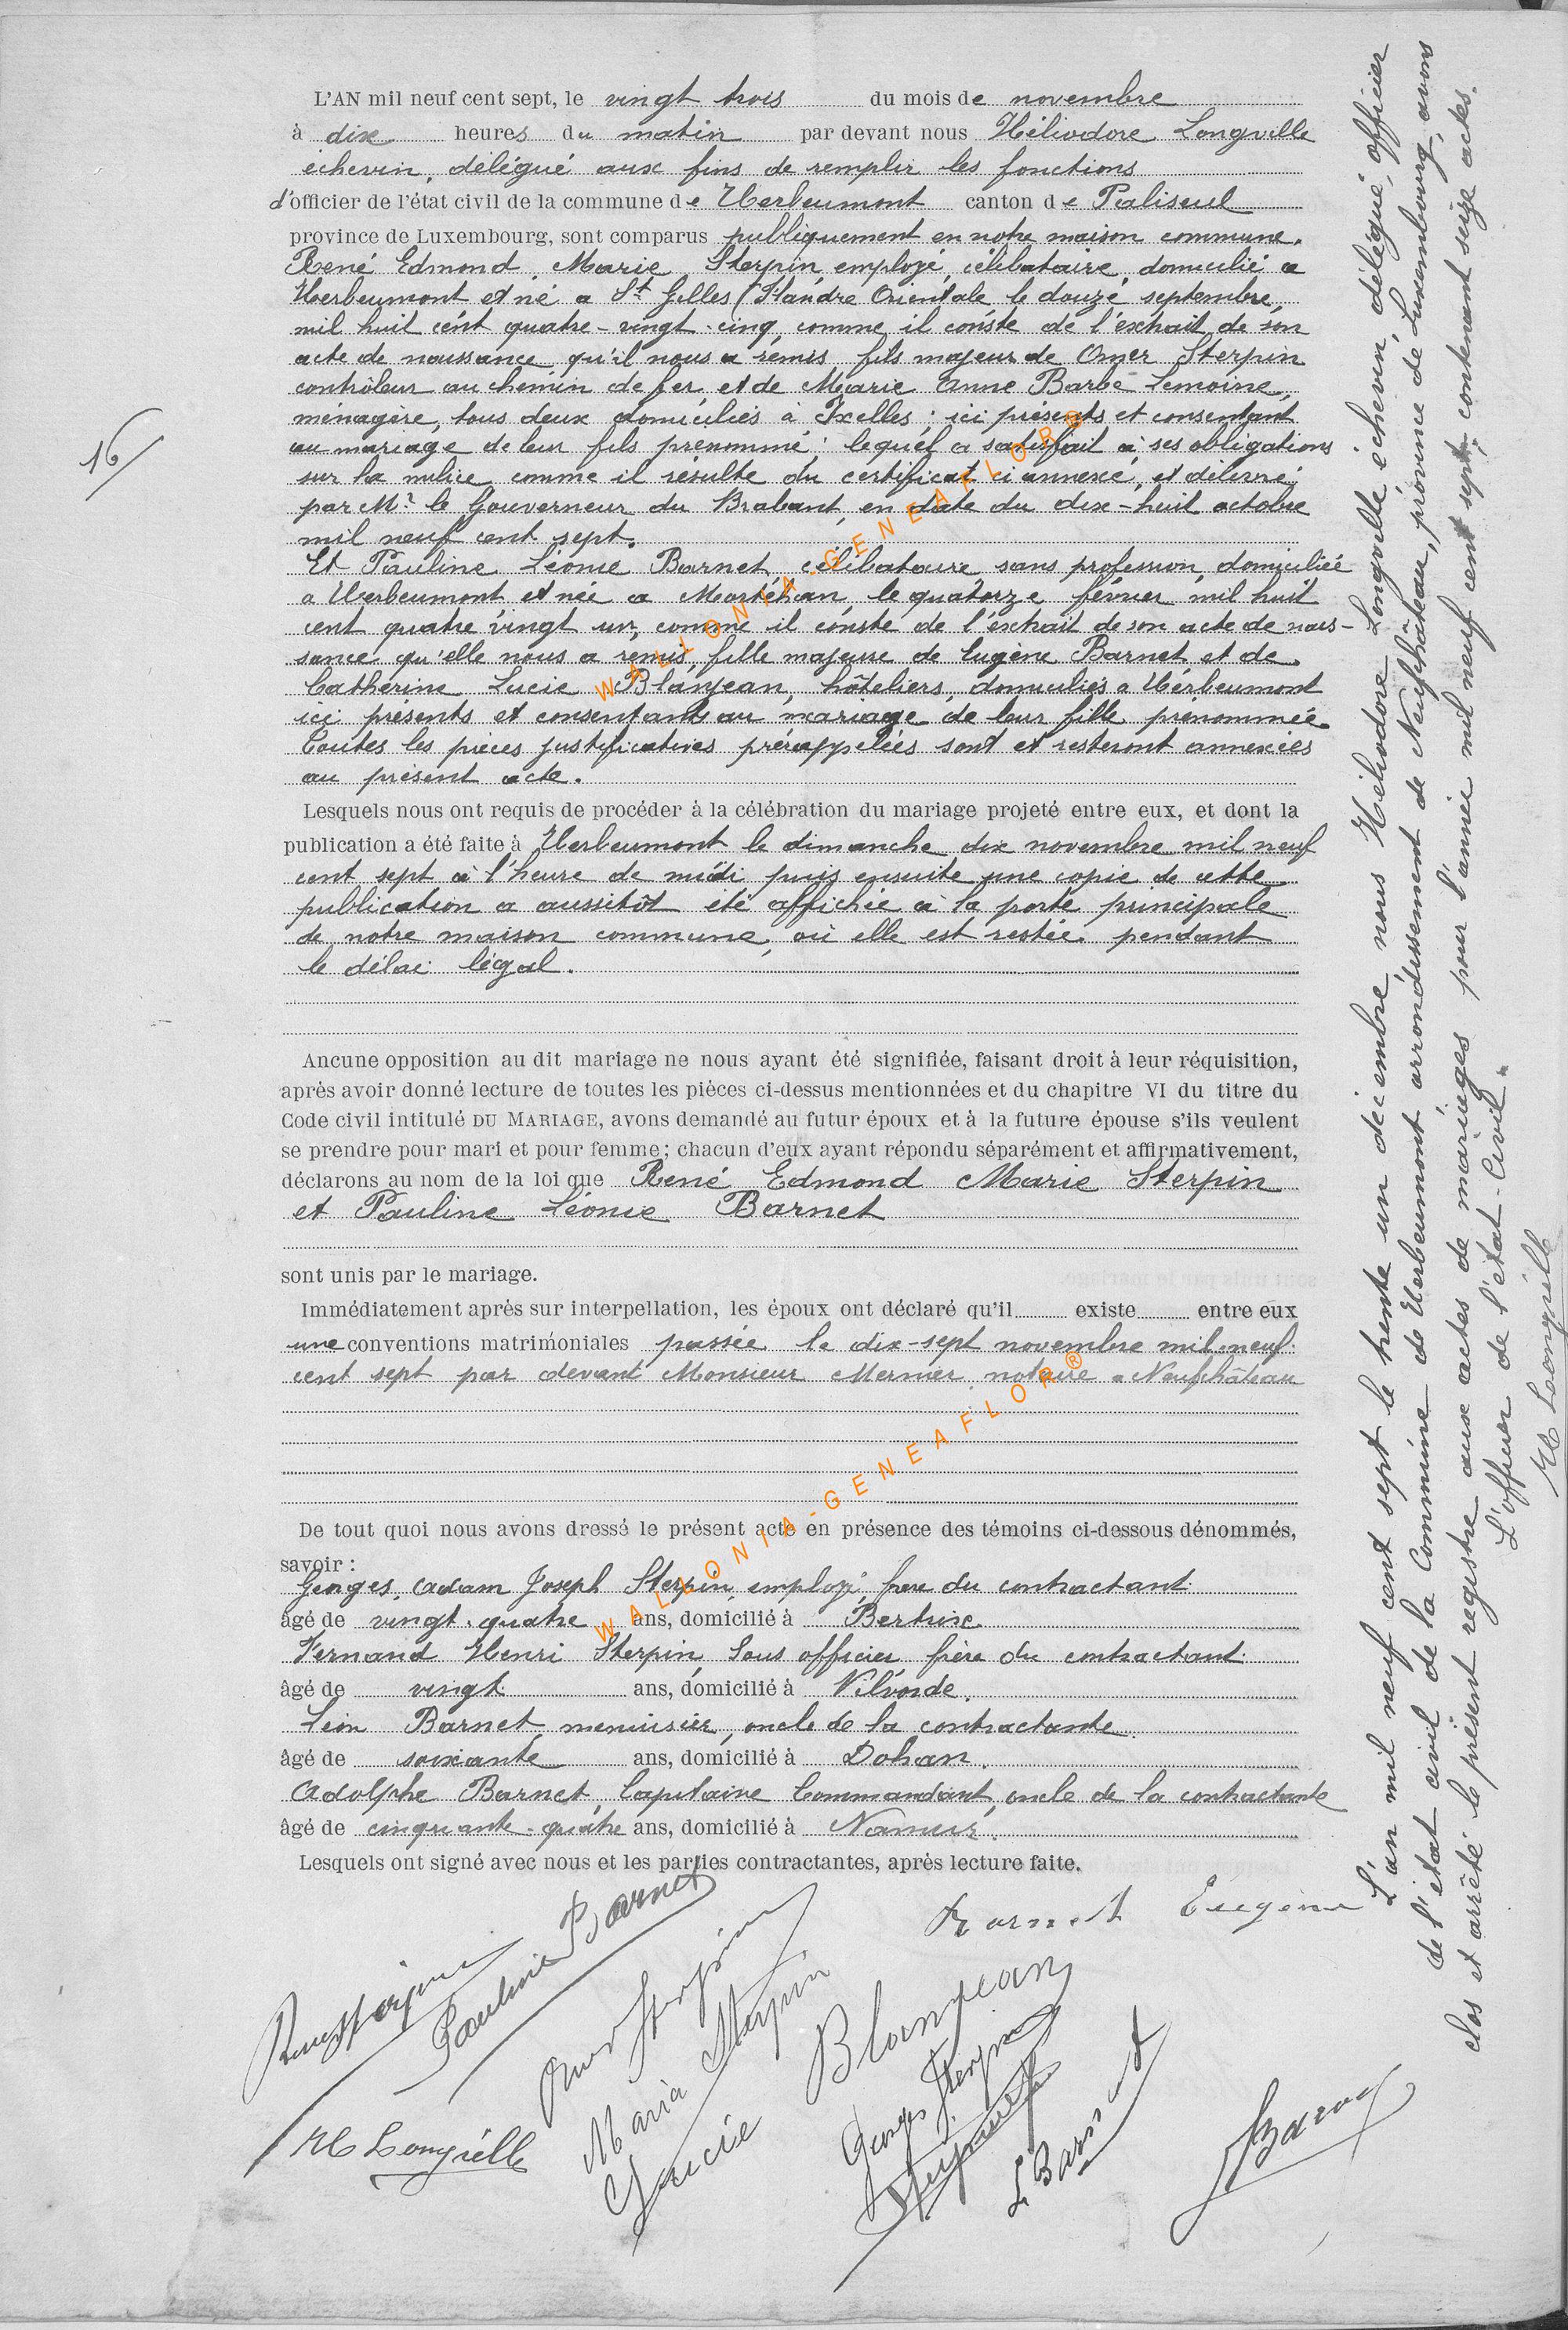 L'AN mil neuf cent sept, le vingt trois du mois de novembre
à dix heures du matin par devant nous Héliodore Longville
échevin, délégué aux fins de remplir les fonctions
d'officier de l'état civil de la commune de Herbeumont canton de Paliseul
province de Luxembourg, sont comparus publiquement en notre maison commune.
René Edmond Marie Sterpin, employé, célibataire, domicilié a
Herbeumont et né a St Gilles (Flandre Orientale le douze septembre
mil huit cent quatre-vingt-cinq, comme il conste de l'extrait de son
acte de naissance qu'il nous a remis fils majeur de Omer Sterpin
contrôleur au chemin de fer et de Marie Anne Barbe Lemoine,
ménagère, tous deux domiciliés à Ixelles; ici présents et consentant
au mariage de leur fils prénommé; lequel a satisfait à ses obligations
sur la milice comme il résulte du certificat ci annexé, et délivré
par Mr le Gouverneur du Brabant, en date du dix-huit octobre
mil neuf cent sept.
Et Pauline Léonie Barnet, célibataire, sans profession, domiciliée
a Herbeumont et née a Martéhan, le quatorze février mil huit
cent quatre vingt un, comme il conste de l'extrait de son acte de nais-
sance qu'elle nous a remis, fille majeure de Eugène Barnet et de
Catherine Lucie Blanjean, hôteliers, domiciliés a Herbeumont
ici présents et consentants au mariage de leur fille prénommée
Toutes les pièces justificatives prérappelées sont et resteront annexées
au présent acte.
16/
Lesquels nous ont requis de procéder à la célébration du mariage projeté entre eux, et dont la
publication a été faite à Herbeumont le dimanche dix novembre mil neuf
cent sept à l'heure de midi puis ensuite une copie de cette
publication a aussitôt été affichée à la porte principale
de notre maison commune, où elle est restée pendant
le délai légal.
Aucune opposition au dit mariage ne nous ayant été signifiée, faisant droit à leur réquisition,
après avoir donné lecture de toutes les pièces ci-dessus mentionnées et du chapitre VI du titre du
Code civil intitulé DU MARIAGE, avons demandé au futur époux et à la future épouse s'ils veulent
se prendre pour mari et pour femme; chacun d'eux ayant répondu séparément et affirmativement,
déclarons au nom de la loi que René Edmond Marie Sterpin
et Pauline Léonie Barnet
sont unis par le mariage.
Immédiatement après sur interpellation, les époux ont déclaré qu'il existe entre eux
une conventions matrimoniales passée le dix-sept novembre mil neuf
cent sept par devant Monsieur Mernier notaire a Neufchâteau
De tout quoi nous avons dressé le présent acte en présence des témoins ci-dessous dénommés,
savoir :
Georges Adam Joseph Sterpin, employé, frère du contractant
âgé de vingt-quatre ans, domicilié à Bertrix
Fernand Henri Sterpin, Sous officier frère du contractant
âgé de vingt ans, domicilié à Vilvorde.
Léon Barnet menuisier, oncle de la contractante
âgé de soixante ans, domicilié à Dohan.
Adolphe Barnet, Capitaine Commandant, oncle de la contractante
âgé de cinquante-quatre ans, domicilié à Namur.
Lesquels ont signé avec nous et les parties contractantes, après lecture faite.
René Sterpin
Pauline Barnet
Omer Sterpin
Barnet Eugène
Maria Sterpin
Lucie Blanjean
Georges Sterpin
L Barnet
H Longville
L'an mil neuf cent sept le trente un décembre, nous Héliodore Longville échevin délégué, officier
de l'état civil de la Commune de Herbeumont arrondissement de Neufchâteau, province de Luxembourg, avons
clos et arrêté le présent registre aux actes de mariages pour l'année mil neuf cent sept, contenant seize actes.
L'officier de l'état-Civil.
H Longville
WALLONIA-GENEAFLOR®
WALLONIA-GENEAFLOR®